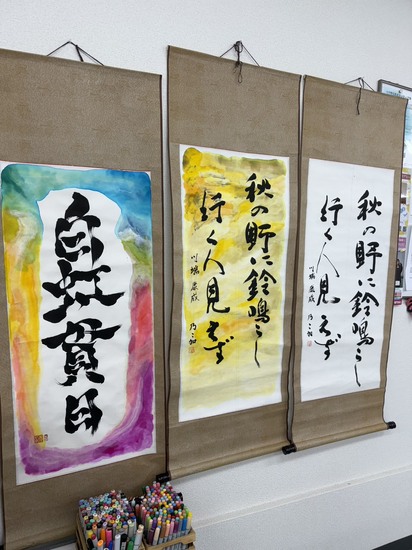 白虹貫日
秋の野に鈴鳴らし
行く人見えず
川端康成
秋の野に鈴鳴らし
行く人見えず
川端康成